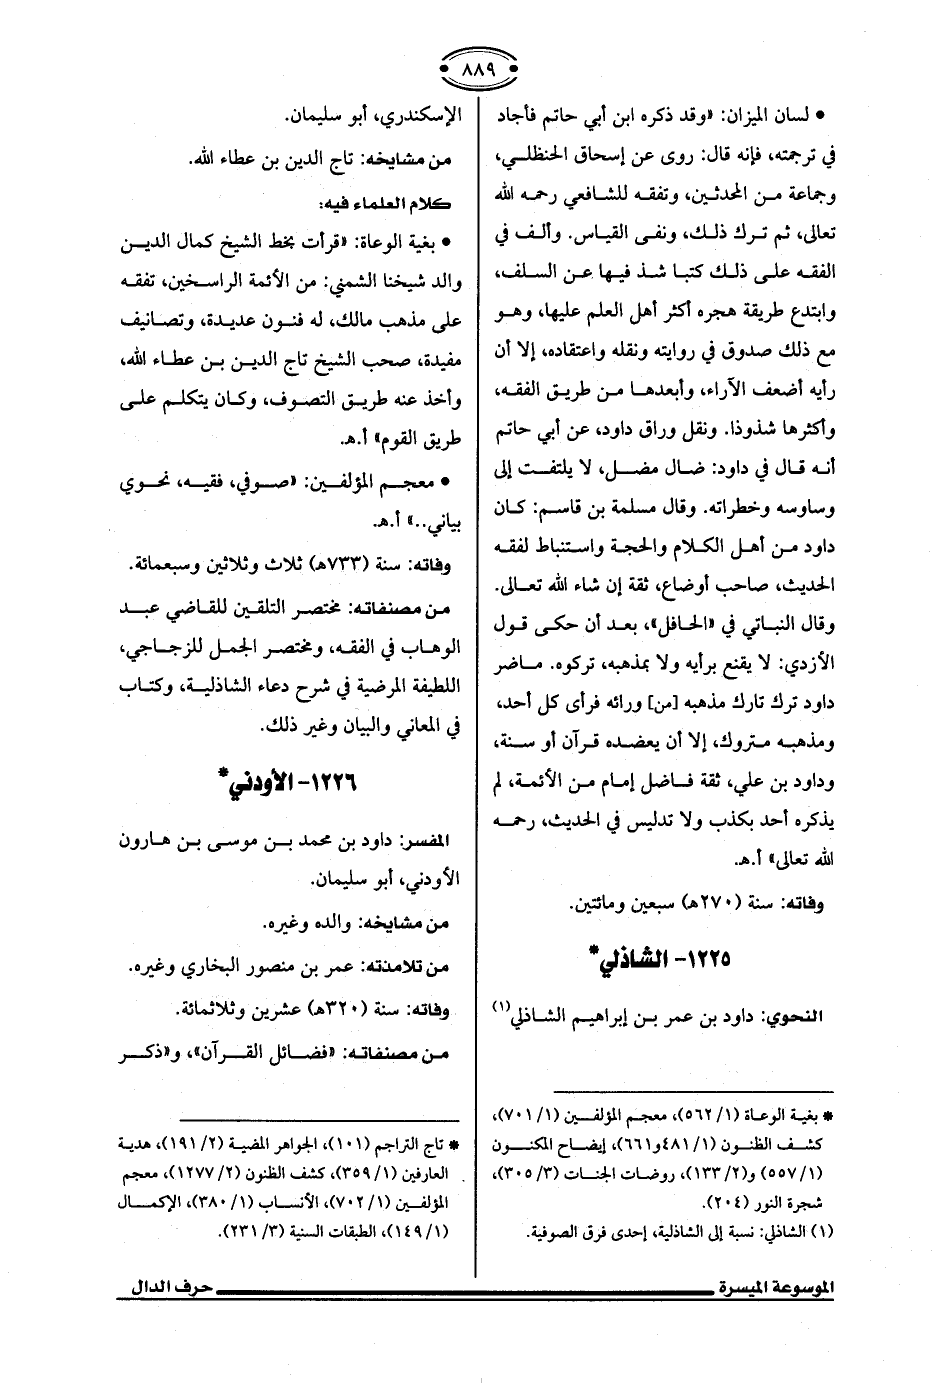 ٨٨٩
• لسان الميزان: «وقد ذكره ابن أبي حاتم فأجاد
في ترجمته، فإنه قال: روى عن إسحاق الحنظلي،
وجماعة من المحدثين، وتفقه للشافعي رحمه الله
تعالى، ثم ترك ذلك، ونفى القياس. وألف في
الفقه على ذلك كتبا شذ فيها عن السلف،
وابتدع طريقة هجره أكثر أهل العلم عليها، وهو
مع ذلك صدوق في روايته ونقله واعتقاده، إلا أن
رأيه أضعف الآراء، وأبعدها من طريق الفقه،
وأكثرها شذوذا. ونقل وراق داود، عن أبي حاتم
أنه قال في داود: ضال مضل، لا يلتفت إلى
وساوسه وخطراته. وقال مسلمة بن قاسم: كان
داود من أهل الكلام والحجة واستنباط لفقه
الحديث، صاحب أوضاع، ثقة إن شاء الله تعالى.
وقال النباتي في «الحافل»، بعد أن حكى قول
الأزدي: لا يقنع برأيه ولا بمذهبه، تركوه. ماضر
داود ترك تارك مذهبه [من] ورائه فرأى كل أحد،
ومذهبه متروك، إلا أن يعضده قرآن أو سنة،
وداود بن علي، ثقة فاضل إمام من الأئمة، لم
يذكره أحد بكذب ولا تدليس في الحديث، رحمه
الله تعالى» أ.هـ.
وفاته: سنة (٢٧٠هـ) سبعين ومائتين.
١٢٢٥- الشاذلي*
النحوي: داود بن عمر بن إبراهيم الشاذلي(١)
* بغية الوعاة (١/ ٥٦٢)، معجم المؤلفين (١/ ٧٠١)،
كشف الظنون (١/ ٤٨١و٦٦١)، إيضاح المكنون
(١/ ٥٥٧) و(٢/ ١٣٣)، روضات الجنات (٣/ ٣٠٥)،
شجرة النور (٢٠٤).
(١) الشاذلي: نسبة إلى الشاذلية، إحدى فرق الصوفية.
الإسكندري، أبو سليمان.
من مشايخه: تاج الدين بن عطاء الله.
كلام العلماء فيه:
• بغية الوعاة: «قرأت بخط الشيخ كمال الدين
والد شيخنا الشمني: من الأئمة الراسخين، تفقه
على مذهب مالك، له فنون عديدة، وتصانيف
مفيدة، صحب الشيخ تاج الدين بن عطاء الله،
وأخذ عنه طريق التصوف، وكان يتكلم على
طريق القوم» أ.هـ.
• معجم المؤلفين: «صوفي، فقيه، نحوي
بياني..» أ.هـ.
وفاته: سنة (٧٣٣هـ) ثلاث وثلاثين وسبعمائة.
من مصنفاته: مختصر التلقين للقاضي عبد
الوهاب في الفقه، ومختصر الجمل للزجاجي،
اللطيفة المرضية في شرح دعاء الشاذلية، وكتاب
في المعاني والبيان وغير ذلك.
١٢٢٦- الأودني*
المفسر: داود بن محمد بن موسى بن هارون
الأودني، أبو سليمان.
من مشايخه: والده وغيره.
من تلامذته: عمر بن منصور البخاري وغيره.
وفاته: سنة (٣٢٠هـ) عشرين وثلاثمائة.
من مصنفاته: «فضائل القرآن»، و«ذكر
* تاج التراجم (١٠١)، الجواهر المضية (٢/ ١٩١)، هدية
العارفين (١/ ٣٥٩)، كشف الظنون (٢/ ١٢٧٧)، معجم
المؤلفين (١/ ٧٠٢)، الأنساب (١/ ٣٨٠)، الإكمال
(١/ ١٤٩)، الطبقات السنية (٣/ ٢٣١).
الموسوعة الميسرة
حرف الدال